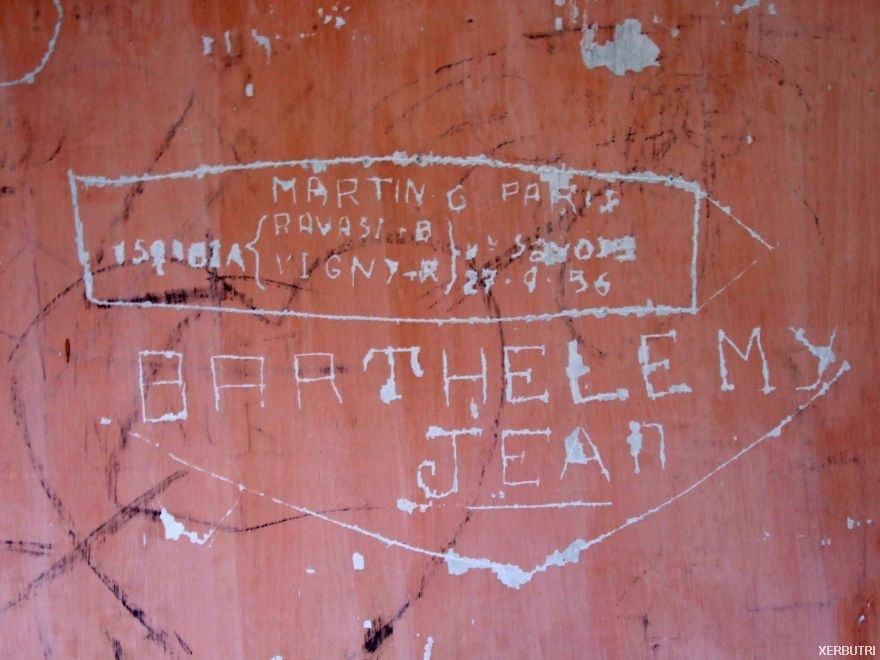 MARTIN·G PARIS
RAVASI·B
VIGNY·R
27·9·56
BARTHELEMY
JEAN
XERBUTRI